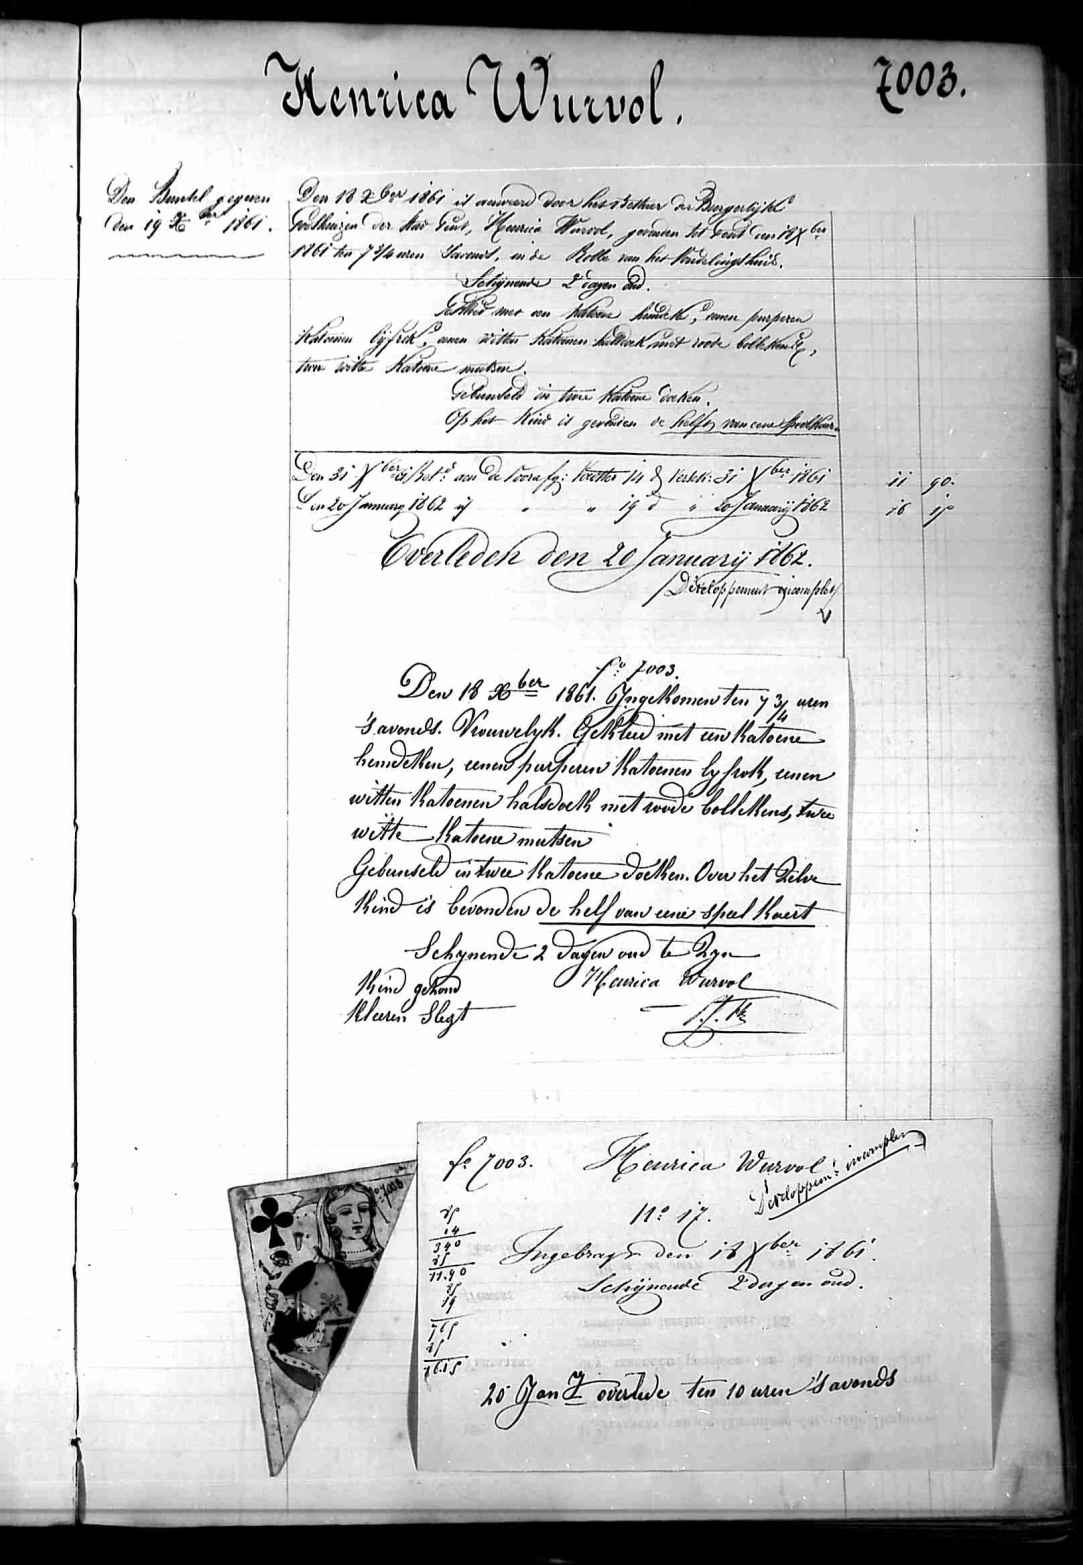 Henrica Wurvol.
7003.
Den Bundel gegeven
den 19 Xber 1861.
Den 18 Xber 1861 is aenveerd door het Bestier der Burgerlijke
Godshuizen der Stad Gent, Henrica Wurvol, gevonden tot Gent den 18 Xber
1861 ten 7 3/4 uren 'Savonds, in de Rolle van het Vondelingshuis.
Schijnende 2 dagen oud.
Gekleed met een katoene hemdek, eenen purperen
Katoenen lijfrok, eenen witten Katoenen halsdoek met roode bollekens,
twee witte Katoene mutsen.
Gebunseld in twee Katoene doeken.
Op het Kind is gevonden de helft van eene speelkaart
Den 31 Xber aen De voorafg: 14 d verstr: 31 Xber 1861 11 90.
Den 20 January 1862 id " " 19 d " 20 Januarij 1862 16 15
Overleden den 20 Januarij 1862.
(Développement incomplet)
fo 7003.
Den 18 Xber 1861. Ingekomen ten 7 3/4 uren
'savonds. Vrouwelyk. Gekleed met een katoene
hemdeken, eenen purperen katoenen lyfrok, eenen
witten katoenen halsdoek met roode bollekens, twee
witte katoene mutsen
Gebunseld in twee katoene doeken. Over het zelve
kind is bevonden de helf van eene speel kaert
Schynende 2 dagen oud te zyn
Kind gezond Henrica Wurvol
Kleeren Slegt
fo 7003. Henrica Wurvol
Developpemt incomplet
No 17.
Ingebragt den 18 Xber 1861.
Schijnende 2 dagen oud.
85
14
340
85
11.90
85
19
765
85
16.15
20 Jany overlede ten 10 uren 'savonds
fo 7003